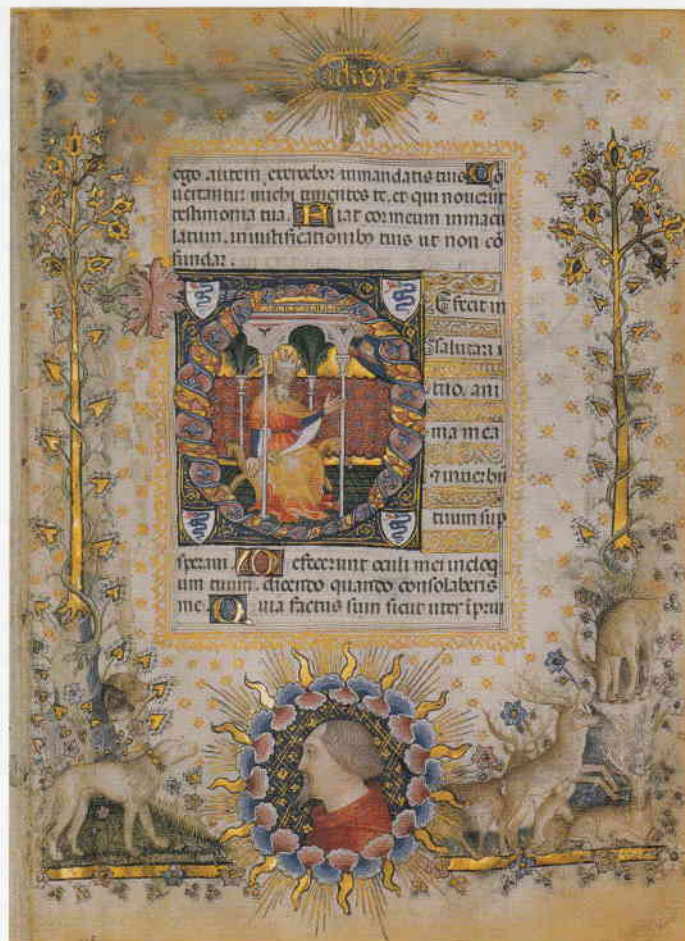 a droyt
ego autem exercebor inmandatis tuis Cō
uertantur michi timentes te. et qui nouerunt
testimonia tua. Fiat cor meum inmacu
latum. in iustificationibꝫ tuis ut non cō
fundar.
D
efecit in
salutari
tuo. ani
ma mea
⁊ in uerbū
tuum sup
speraui. Defecerunt oculi mei in eloq
um tuum. dicendo quando consolaberis
me. Quia factus sum sicut uter ī prui